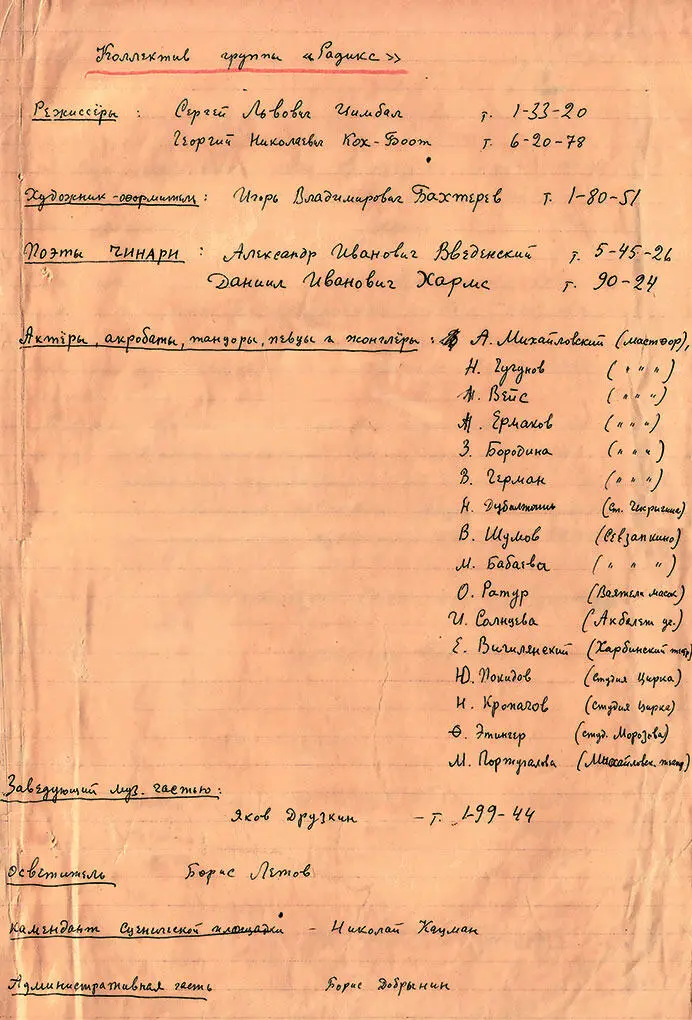 Коллектив группы «Радикс»
Режиссёры : Сергей Львович Цимбал т. 1-33-20
Георгий Николаевич Кох-Боот т. 6-20-78
Художник-оформитель : Игорь Владимирович Бахтерев т. 1-80-51
Поэты чинари : Александр Иванович Введенский т. 5-45-26
Даниил Иванович Хармс т. 90-24
Актёры, акробаты, танцоры, певцы и жонглёры : А. Михайловский (мастфор),
Н. Чугунов (" " ")
Вейс (" " ")
Ермаков (" " ")
З. Бородина (" " ")
В. Герман (" " ")
(ст.
В. Шумов (Севзапкино)
М. Бабаева (" " ")
О. Ратур (Ваятели масок)
И. Солнцева (Акбалет
Е. Вигилянский (Харбинский театр)
Ю. Покидов (студия Цирка)
Н. Кропачов (студия цирка)
Этингер (студ. Морозова)
М. Португалова (Михайловск. театр)
Заведующий муз. частью:
Яков Друзкин - т. 1-99-44
Осветитель Борис Летов
Камендант сценической площадки - Николай Кацман
Административная часть Борис Добрынин